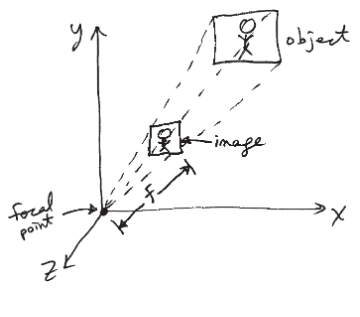 y
object
image
f
focal
point
x
z